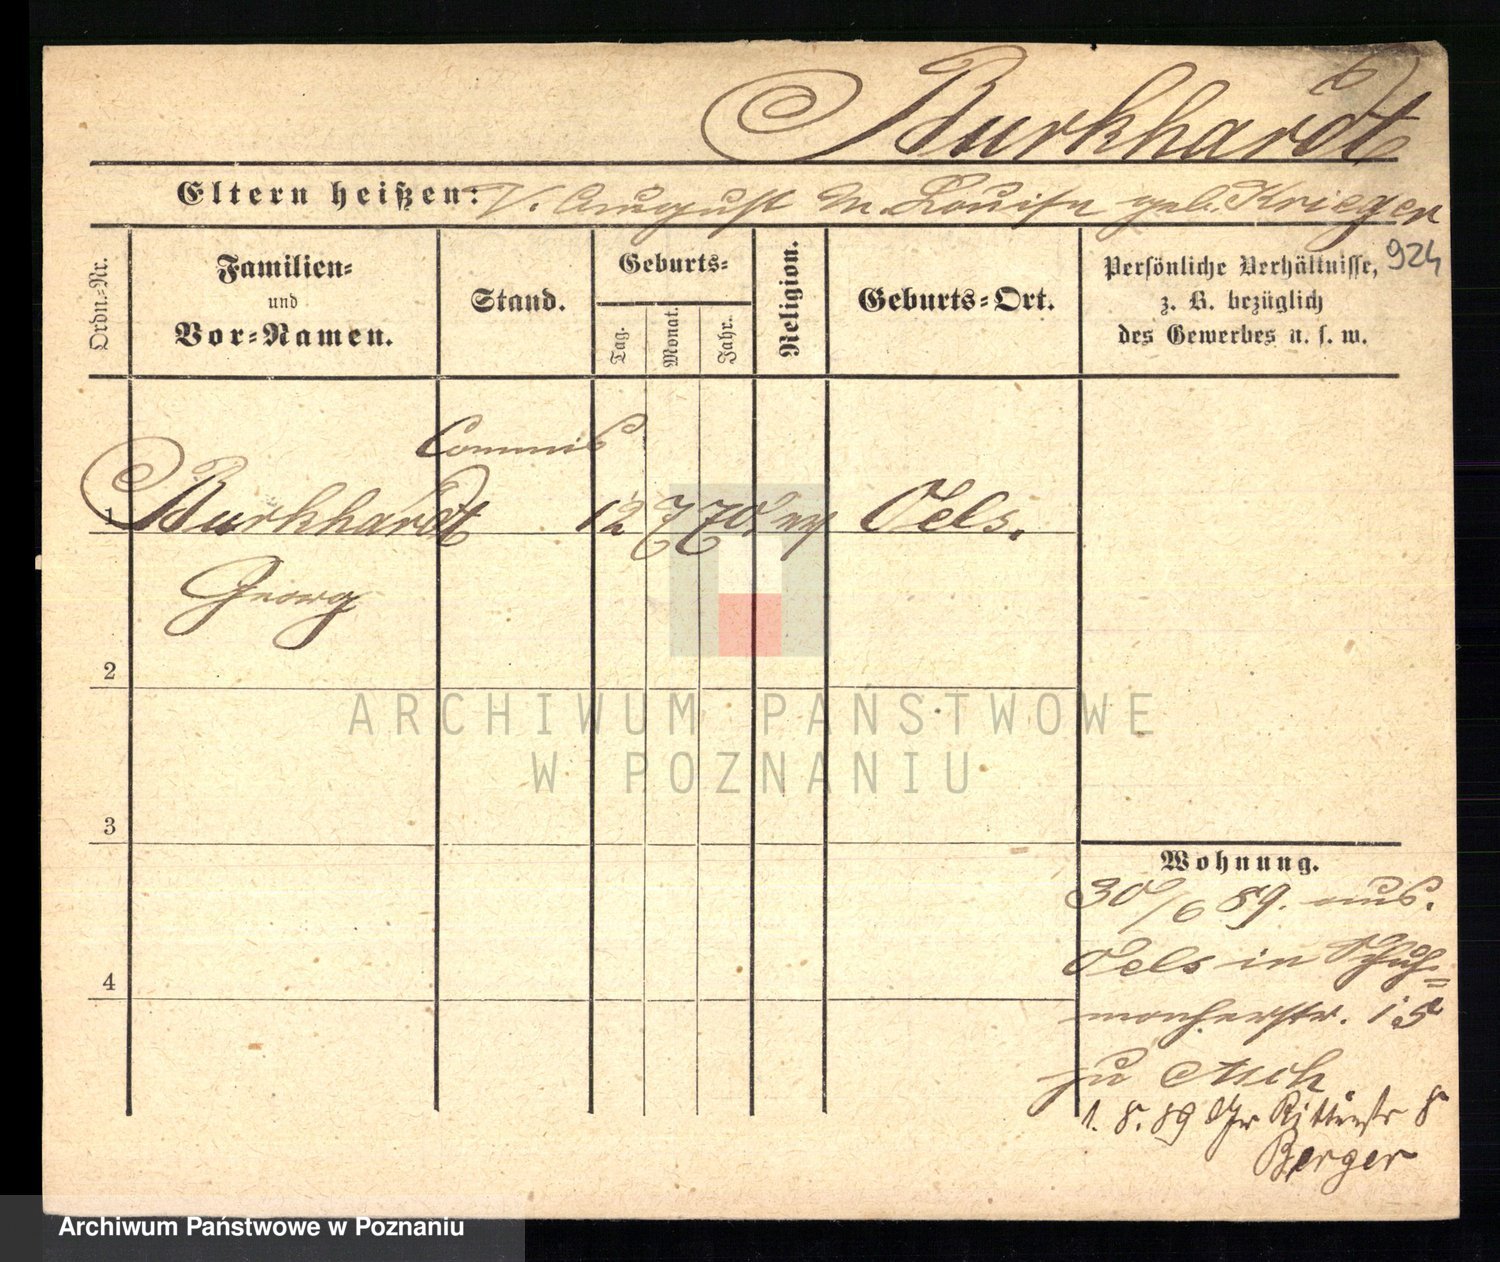 Burkhardt
Eltern heißen: V. August M. Louise geb. Krieger
924
Ordn.-Nr.
Familien-
und
Vor-Namen.
Stand.
Geburts-
Tag.
Monat.
Jahr.
Religion.
Geburts-Ort.
Persönliche Verhältnisse,
z. B. bezüglich
des Gewerbes u. s. w.
Commis
1 Burkhardt 12 7 70 ev Oels.
Georg
2
3
4
Wohnung.
30/6 89. aus.
Oels in Schuh-
macherstr. 15
zu Asch.
1. 8. 89 Gr Ritterstr 8
Berger
ARCHIWUM PAŃSTWOWE
W POZNANIU
Archiwum Państwowe w Poznaniu